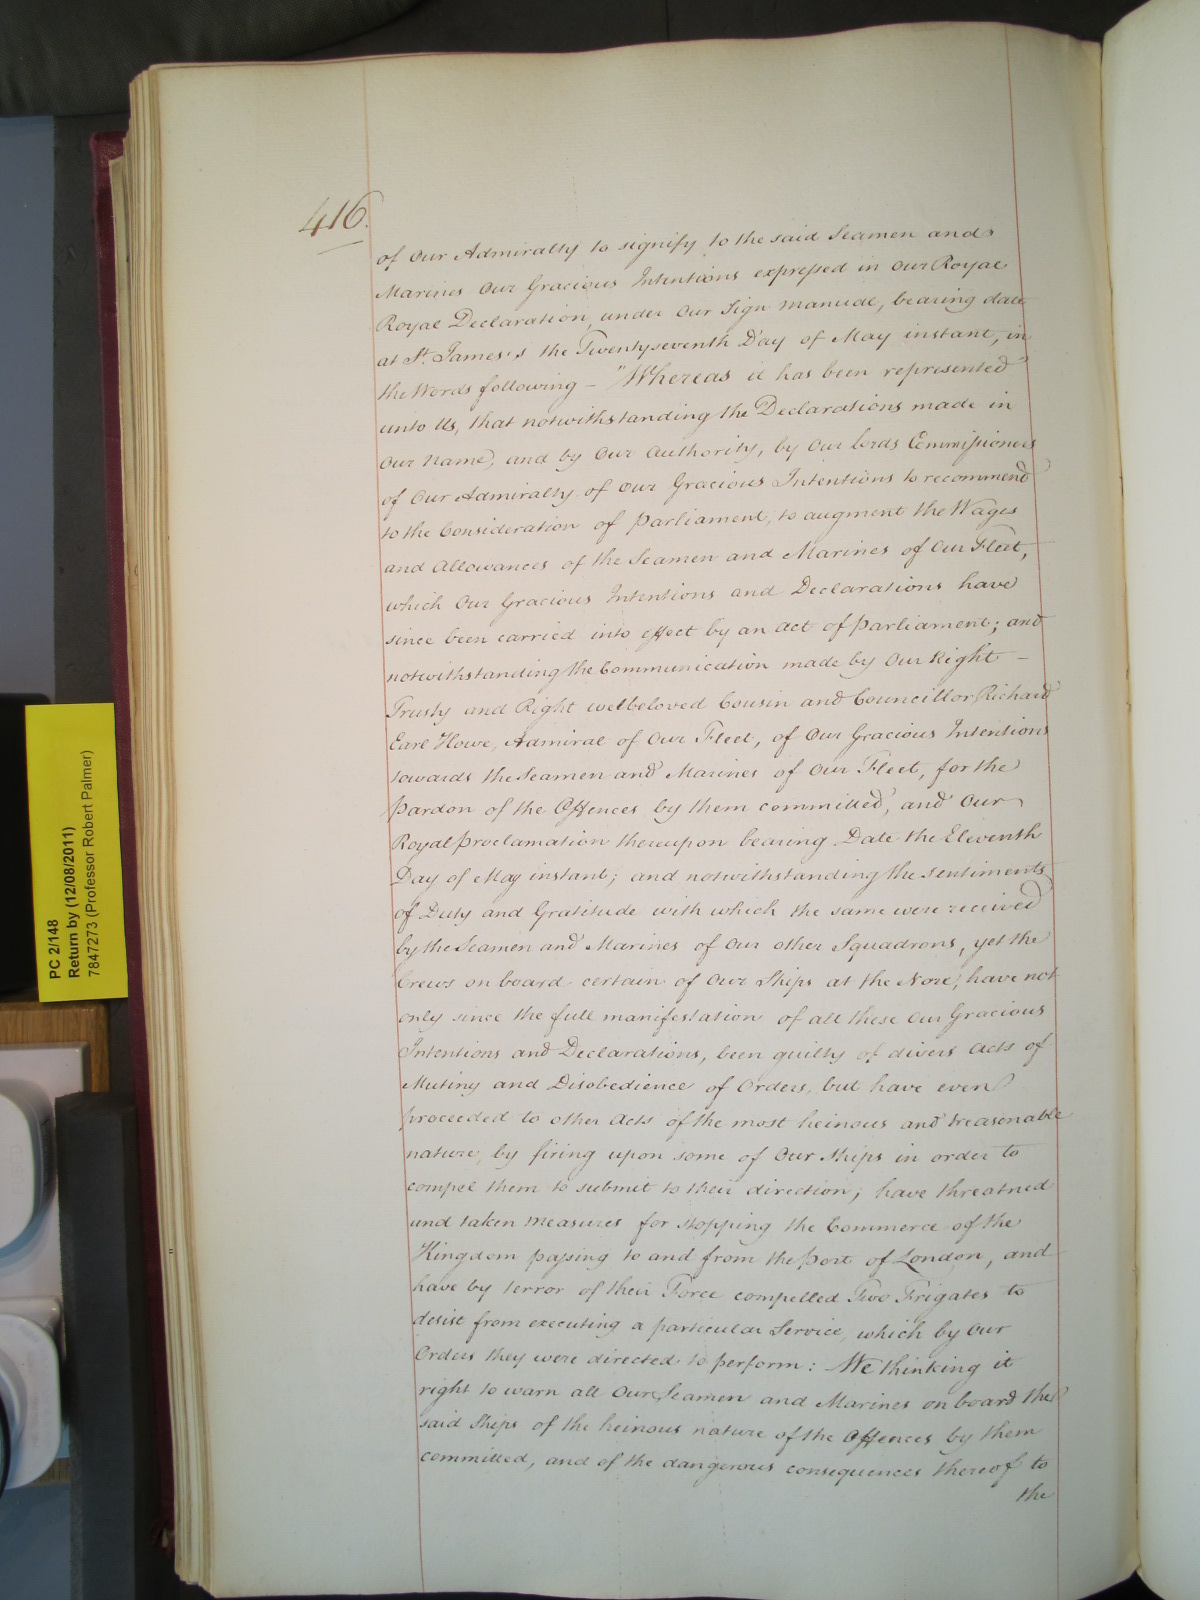 416.
of Our Admiralty to signify to the said Seamen and
Marines Our Gracious Intentions expressed in Our Royal
Royal Declaration, under Our Sign Manual, bearing date
at St. James's the Twentyseventh Day of May instant, in
the Words following – "Whereas it has been represented
unto Us, that notwithstanding the Declarations made in
Our Name, and by Our Authority, by Our Lords Commissioners
of Our Admiralty, of Our Gracious Intentions to recommend
to the Consideration of Parliament, to augment the Wages
and Allowances of the Seamen and Marines of Our Fleet,
which Our Gracious Intentions and Declarations have
since been carried into effect by an Act of Parliament; and
notwithstanding the Communication made by Our Right –
Trusty and Right welbeloved Cousin and Councillor Richard
Earl Howe, Admiral of Our Fleet, of Our Gracious Intentions
towards the Seamen and Marines of Our Fleet, for the
Pardon of the Offences by them committed, and Our
Royal Proclamation thereupon bearing Date the Eleventh
Day of May instant; and notwithstanding the sentiments
of Duty and Gratitude with which the same were received
by the Seamen and Marines of Our other Squadrons, yet the
Crews on board certain of Our Ships at the Nore, have not
only since the full manifestation of all these Our Gracious
Intentions and Declarations, been guilty of divers Acts of
Mutiny and Disobedience of Orders, but have even
proceeded to other Acts of the most heinous and treasonable
nature, by firing upon some of Our Ships in order to
compel them to submit to their direction; have threatned
and taken measures for stopping the Commerce of the
Kingdom passing to and from the Port of London, and
have by terror of their Force compelled Two Frigates to
desist from executing a particular Service, which by Our
Orders they were directed to perform: We thinking it
right to warn all Our Seamen and Marines on board the
said Ships of the heinous nature of the Offences by them
committed, and of the dangerous consequences thereof to
the
PC 2/148
Return by (12/08/2011)
7847273 (Professor Robert Palmer)